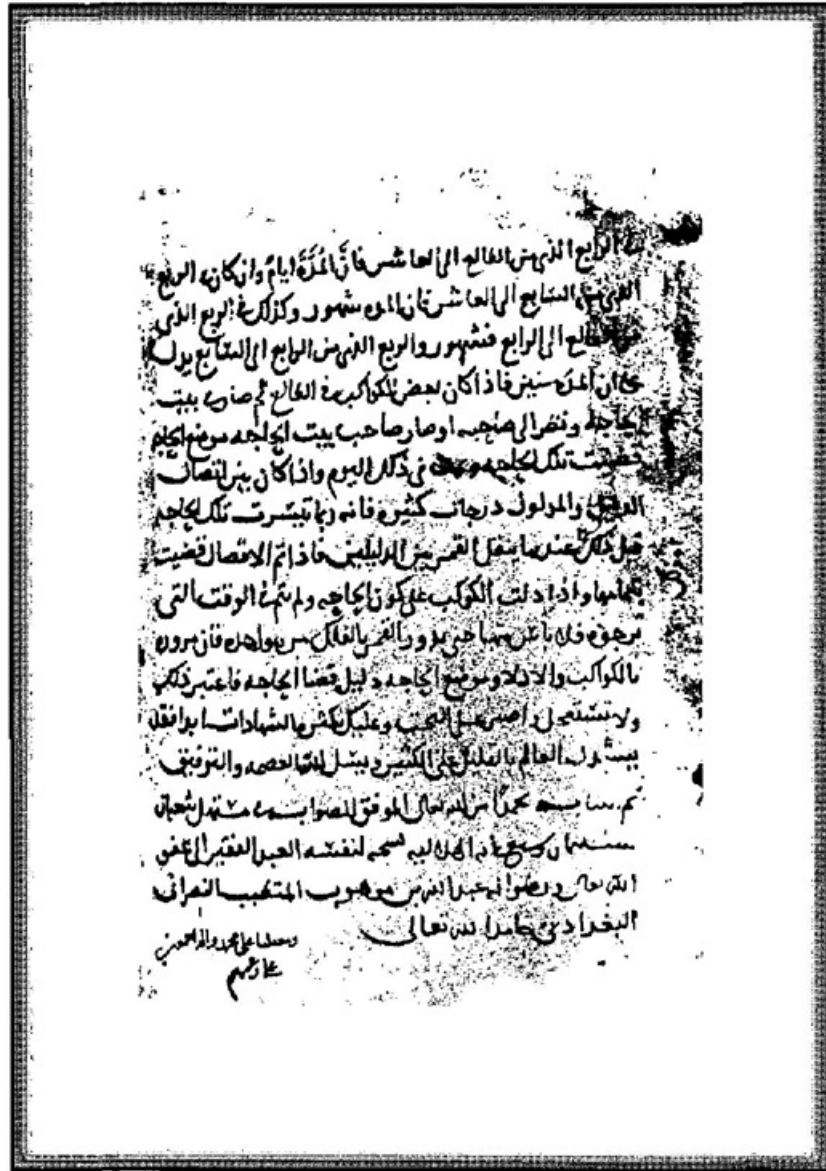 الربع الذي من الطالع الى العاشر فانَّ المُدَّةَ ايامٌ وان كان الربع
الذي من السابع الى العاشر فان المده شهور وكذلك في الربع الذي
من الطالع الى الرابع فشهور والربع الذي من الرابع الى السابع يدل
على ان المدة سنين فاذا كان بعض الكواكب في الطالع ثم صار في بيت
الحاجة ونظر الى صاحبه او صار صاحب بيت الحاجه موضع الحاجه
قضيت تلك الحاجه في ذلك اليوم واذا كان بين اتصال
الدليل والمدلول درجات كثيره فانه ربما تيسرت تلك الحاجه
قبل ذلك عندما ينقل القمر بين الدليلين فاذا تم الاتصال قضيت
بتمامها واذا دلت الكواكب على كون الحاجه ولم تتم في الوقت التي
ترجوه فلا تأس صاحبي بدور القمر بالفلك من مواضعه فان مروره
بالكواكب والادلا وموضع الحاجه دليل قضا الحاجه فاعتبر ذلك
ولا تستعجل واصبر وعليك بكثر بالشهادات
العالم بالقليل على الكثير ونسل الله العصمه والتوفيق
تم بحمد الله تعالى الموفق للصواب في مستهل شعبان
سنه ثمان الهلاليه نسخه لنفسه العبد الفقير الى عفو
الله تعالى ورضوانه عبد الله بن موهوب المتطبب النصراني
البغدادي حامدا لله تعالى
ومصليا على محمد واله اجمعين